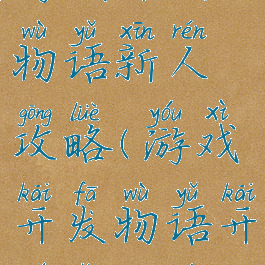 wù yǔ xīn rén
物语新人
gōng lüè yóu xì
攻略(游戏
kāi fā wù yǔ kāi
开发物语开